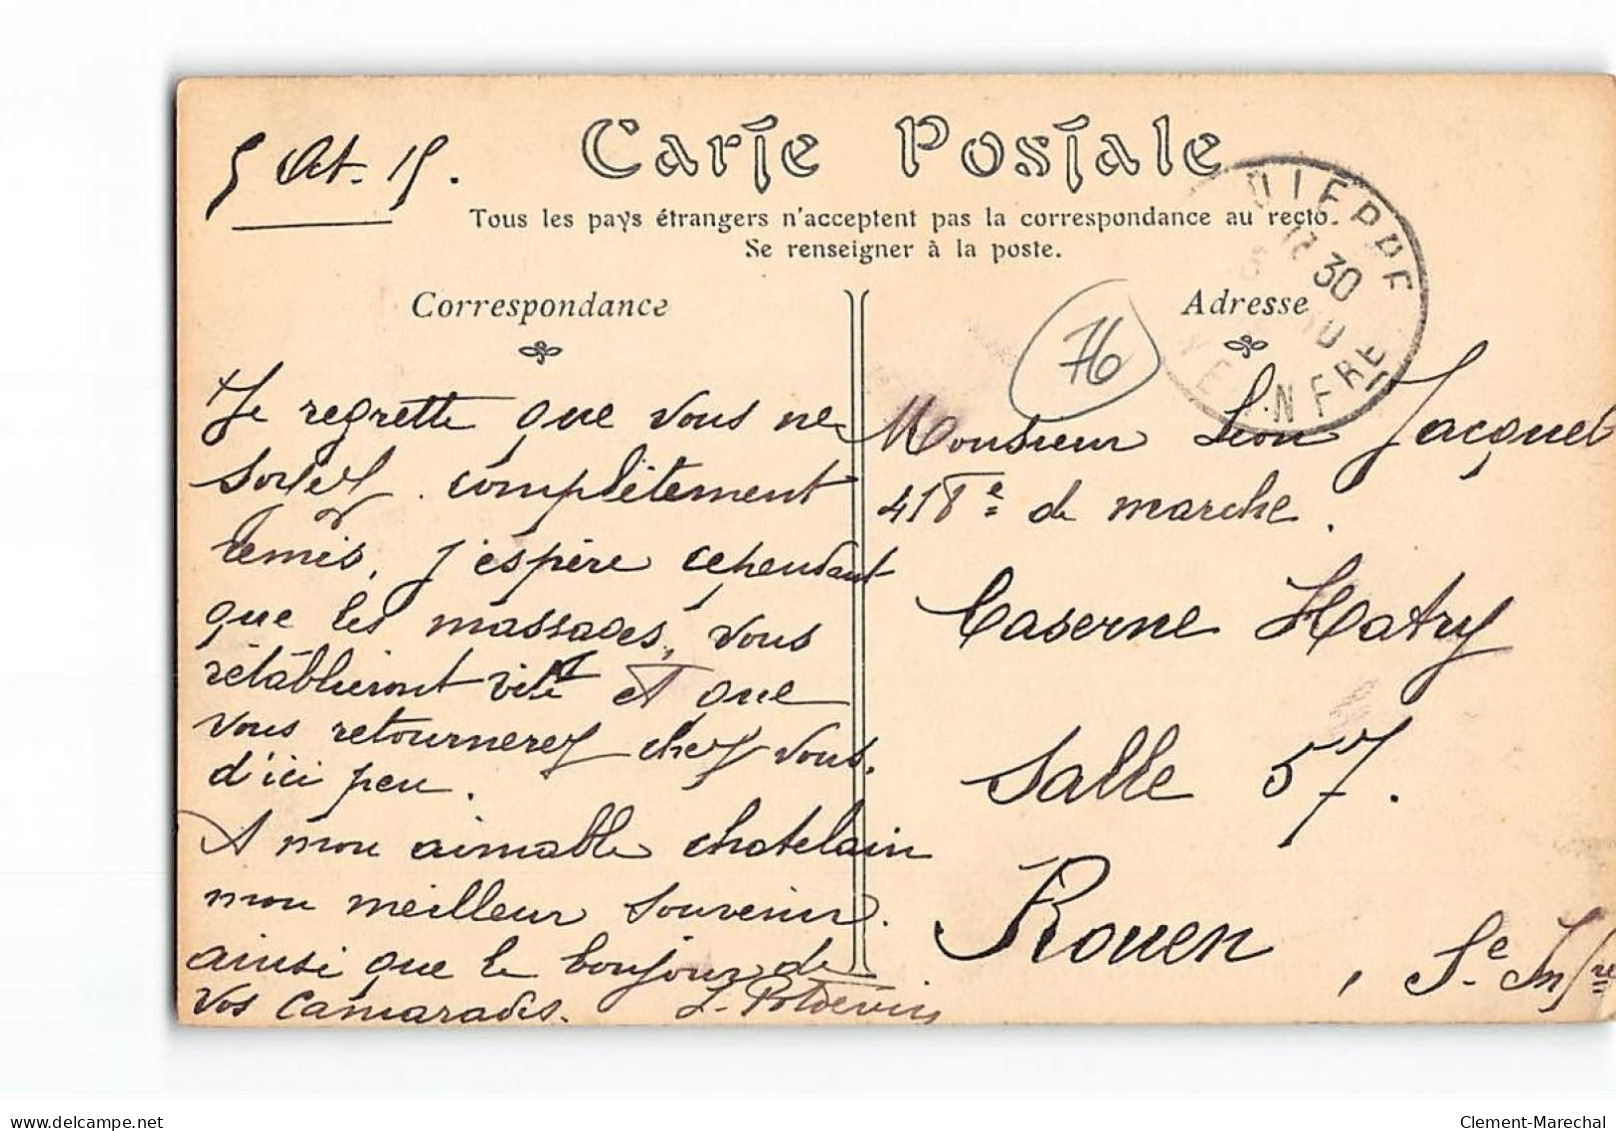 5 Oct. 15.
Carte Postale
Tous les pays étrangers n'acceptent pas la correspondance au recto.
Se renseigner à la poste.
Correspondance
Je regrette que vous ne
soyez complètement
remis, j'espère cependant
que les massages, vous
rétabliront vite et que
vous retournerez chez vous
d'ici peu.
A mon aimable chatelain
mon meilleur souvenir
ainsi que le bonjour de
vos camarades. L. Potdevin
Adresse
76
DIEPPE
30
10
INFRE
Monsieur Léon Jacquel
418e de marche.
Caserne Hatry
Salle 57.
Rouen, Se Infre
delcampe.net
Clement-Marechal